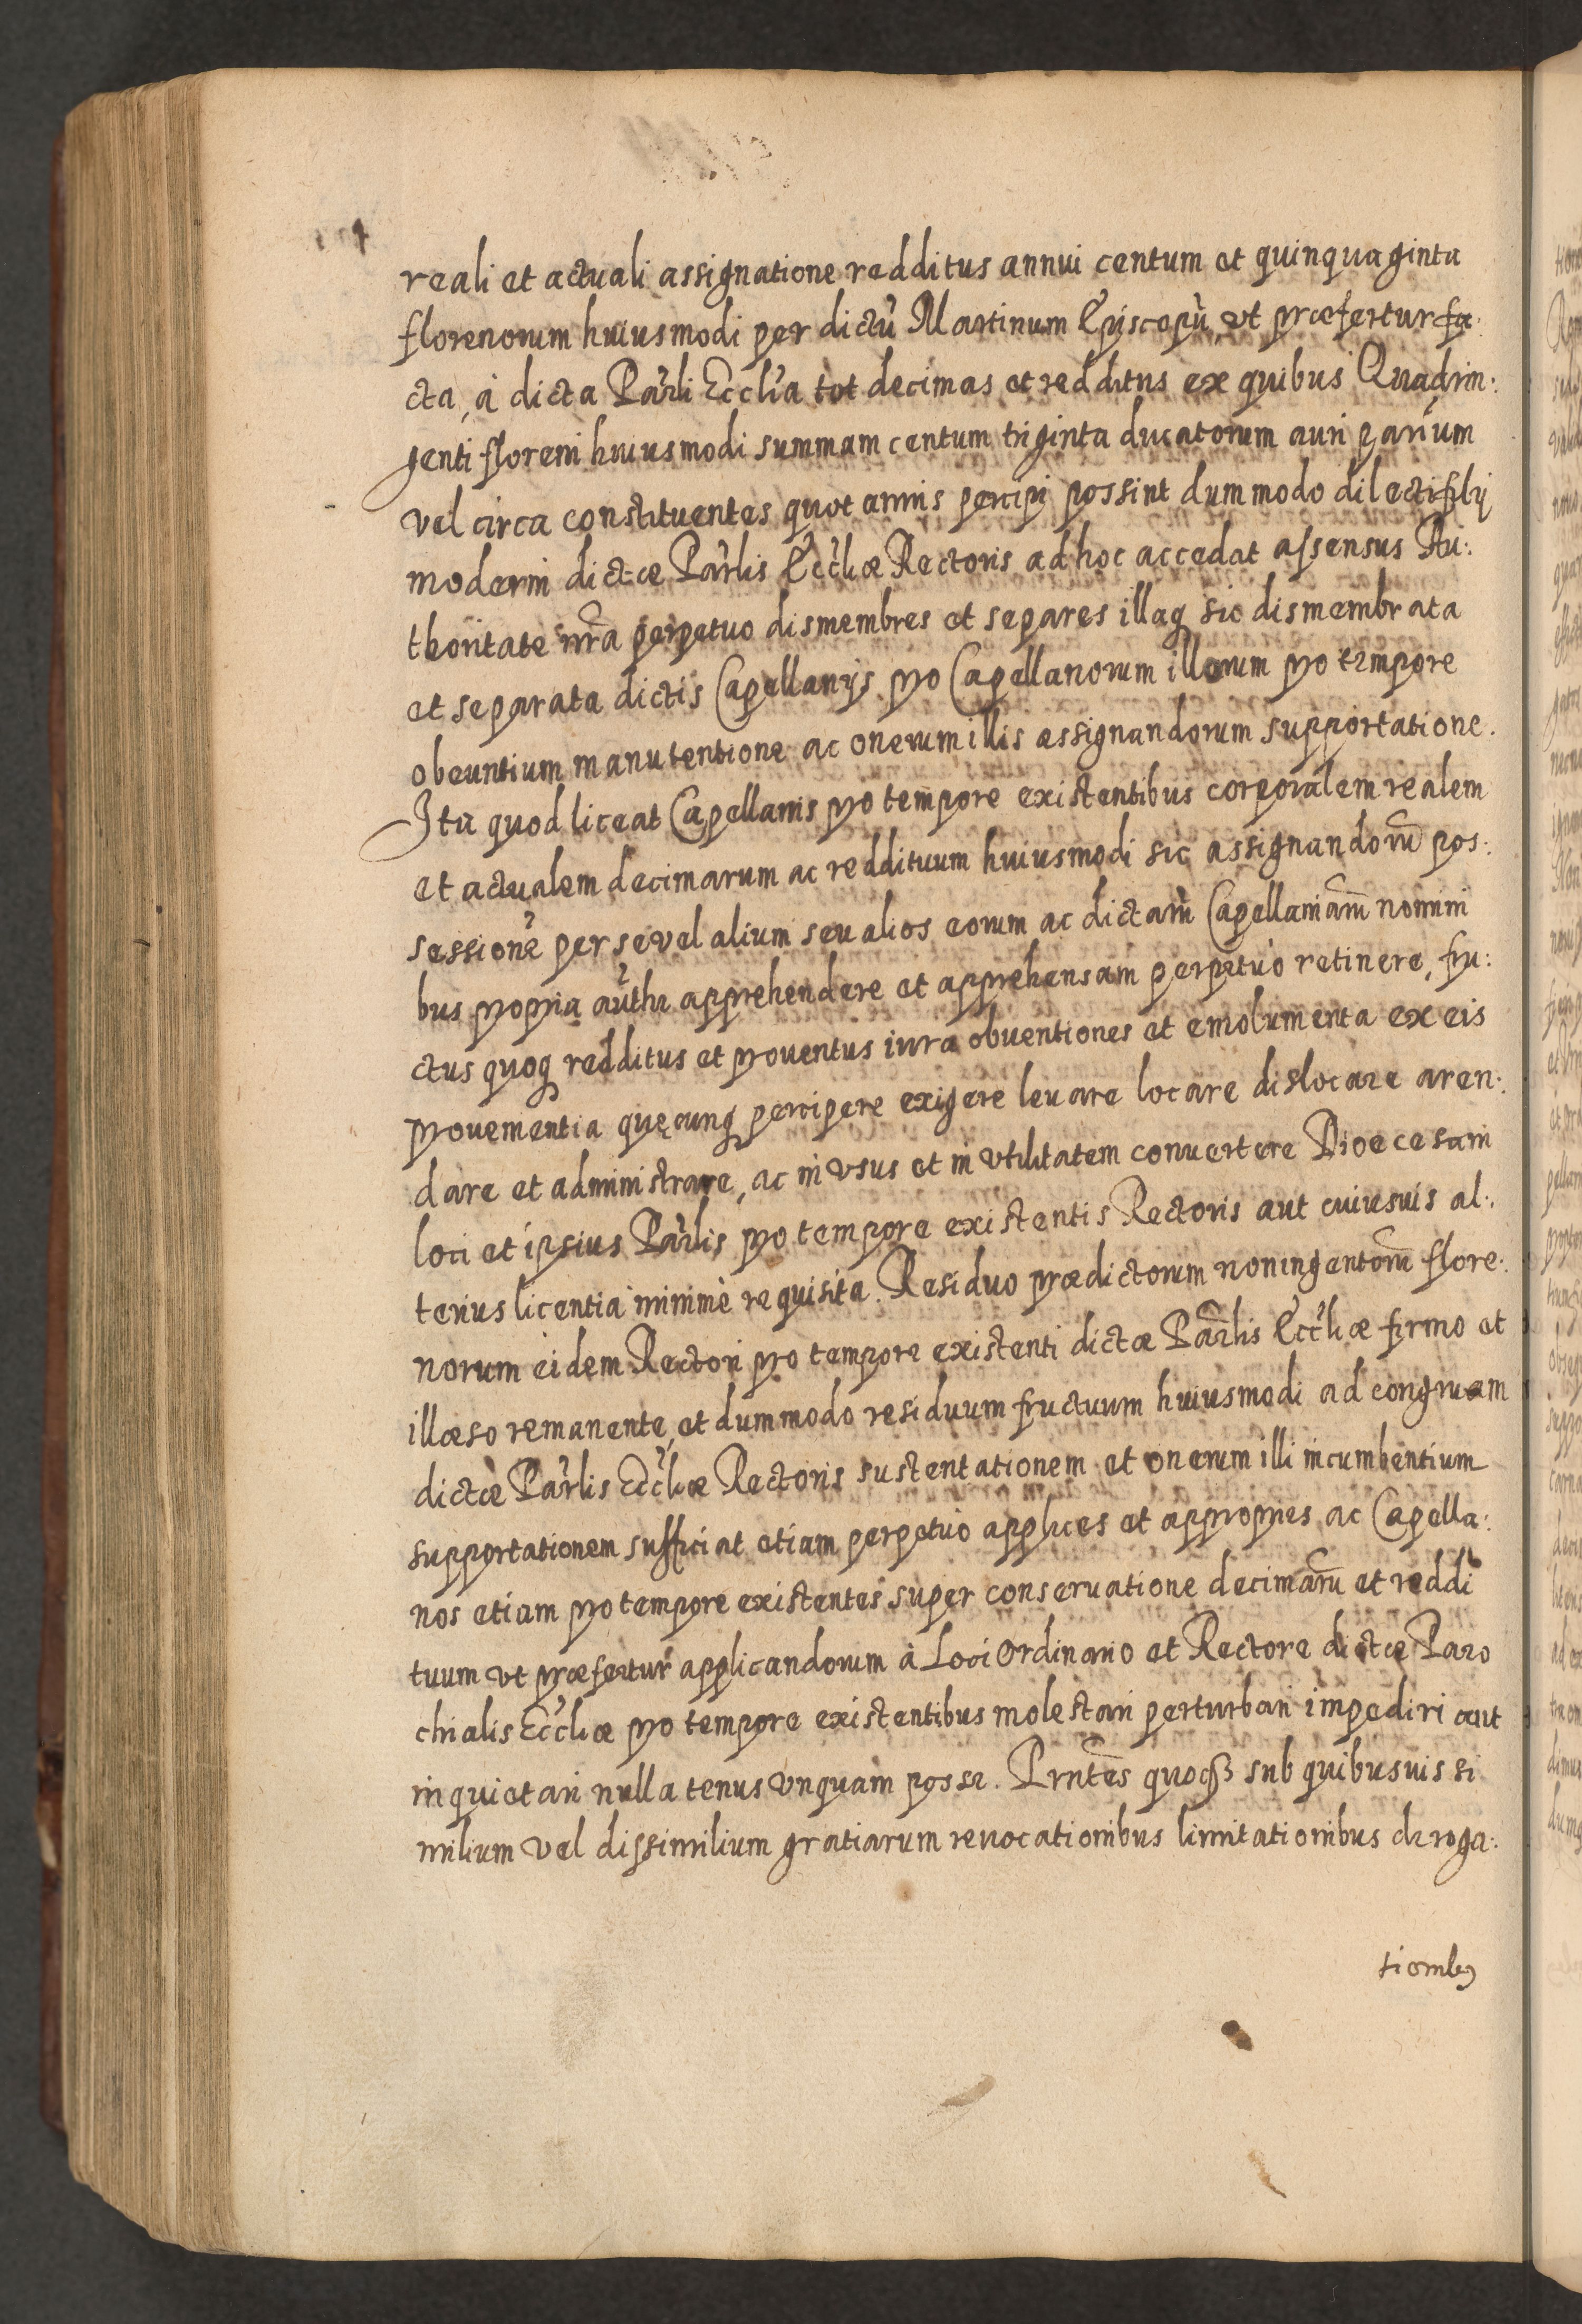 reali et actuali assignatione redditus annui centum et quinquaginta
florenorum huiusmodi per dictũ Martinum Episcopũ, vt præfertur fa:
cta, à dicta Parl̃i Eccl̃ia tot decimas et redditus ex quibus Quadrin:
genti floreni huiusmodi summam centum triginta ducatorum auri parium
vel circa constituentes quot annis percipi possint dummodo dilecti filij
moderni dictæ Parl̃is Eccl̃iæ Rectoris ad hoc accedat assensus Au:
thoritate nr̃a perpetuo dismembres et separes illaq sic dismembrata
et separata dictis Capellanijs pro Capellanorum illorum pro tempore
obeuntium manutentione ac onerum illis assignandorum supportatione.
Ita quod liceat Capellanis pro tempore existentibus corporalem realem
et actualem decimarum ac reddituum huiusmodi sic assignandorũ pos:
sessionẽ per se vel alium seu alios eorum ac dictarũ Capellaniarũ nomini
bus propria autht̃e apprehendere et apprehensam perpetuò retinere, fru:
ctus quoq redditus et prouentus iura obuentiones et emolumenta ex eis
prouenientia quęcunq percipere exigere leuare locare dislocare aren:
dare et administrare, ac in vsus et in vtilitatem conuertere Dioecesani
loci et ipsius Parl̃is pro tempore existentis Rectoris aut cuiusuis al:
terius licentia minimè requisita. Residuo prædictorum noningentorũ flore:
norum eidem Rectori pro tempore existenti dictæ Parl̃is Eccl̃iæ firmo et
illæso remanente, et dummodo residuum fructuum huiusmodi ad congruam
dictæ Parl̃is Eccl̃iæ Rectoris sustentationem et onerum illi incumbentium
supportationem sufficiat etiam perpetuò applices et appropries ac Capella:
nos etiam pro tempore existentes super conseruatione decimarũ et reddi
tuum vt præfertur applicandorum à Loci Ordinario et Rectore dictæ Paro
chialis Eccl̃iæ pro tempore existentibus molestari perturbari impediri aut
inquietari nullatenus vnquam posse. Prñtes quoqꝫ sub quibusuis si
milium vel dissimilium gratiarum reuocationibus limitationibus deroga:
tionibꝰ